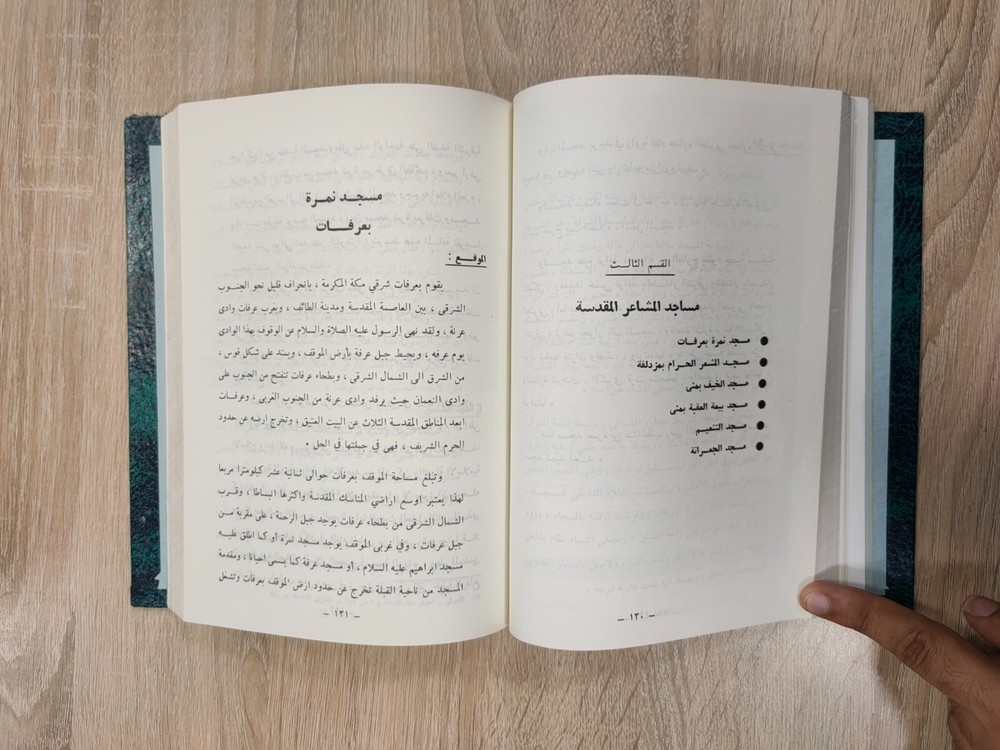 القسم الثالث
مساجد المشاعر المقدسة
● مسجد نمرة بعرفات
● مسجد المشعر الحرام بمزدلفة
● مسجد الخيف بمنى
● مسجد بيعة العقبة بمنى
● مسجد التنعيم
● مسجد الجعرانة
– ١٣٠ –
مسجد نمرة
بعرفات
الموقع :
يقوم بعرفات شرقي مكة المكرمة ، بإنحراف قليل نحو الجنوب
الشرقى ، بين العاصمة المقدسة ومدينة الطائف ، وبغرب عرفات وادى
عرنة ، ولقد نهى الرسول عليه الصلاة والسلام عن الوقوف بهذا الوادى
يوم عرفه ، ويحيط جبل عرفة بأرض الموقف ، ويمتد على شكل قوس ،
من الشرق الى الشمال الشرقى ، وبطحاء عرفات تنفتح من الجنوب على
وادى النعمان حيث يرفد وادى عرنة من الجنوب الغربى ، وعرفات
ابعد المناطق المقدسة الثلاث عن البيت العتيق ، وتخرج ارضه عن حدود
الحرم الشريف ، فهى في جملتها في الحل .
وتبلغ مساحة الموقف بعرفات حوالى ثمانية عشر كيلومترا مربعا
لهذا يعتبر اوسع اراضي المناسك المقدسة واكثرها انبساطا ، وقرب
الشمال الشرقى من بطحاء عرفات يوجد جبل الرحمة ، على مقربة من
جبل عرفات ، وفي غربى الموقف يوجد مسجد نمرة أو كما اطلق عليه
مسجد ابراهيم عليه السلام ، أو مسجد عرفة كما يسمى احيانا ، ومقدمة
المسجد من ناحية القبلة تخرج عن حدود ارض الموقف بعرفات وتشغل
– ١٣١ –